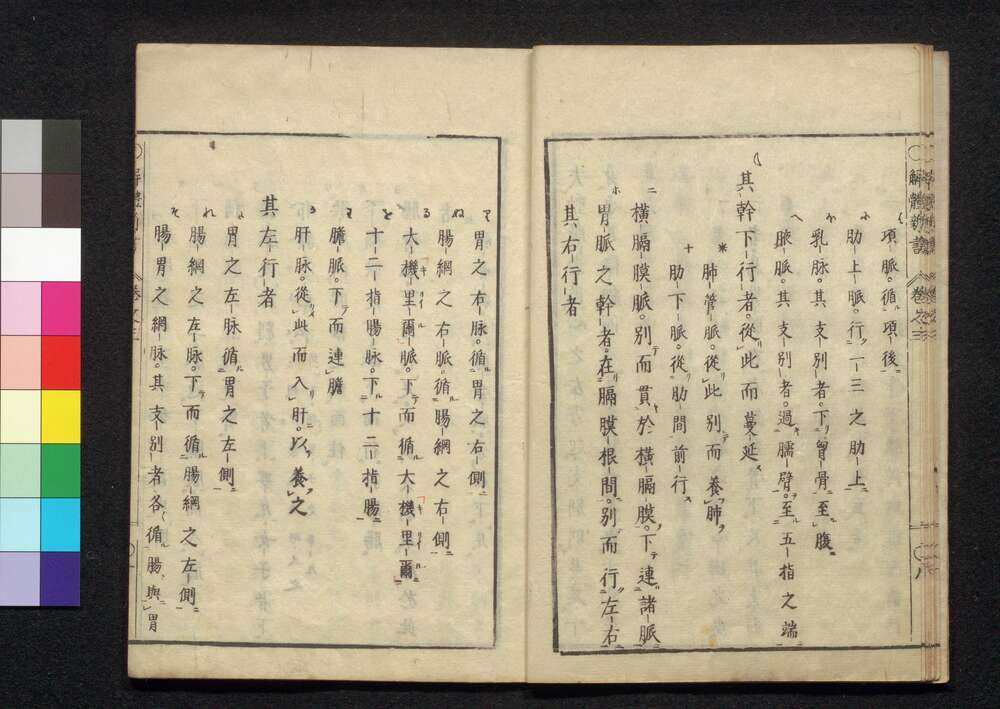 解體新書 卷之三 八
項脈。循項後。
肋上脈。行一三之肋上
乳脉。其支別者。下胷骨。至腹
腋脈。其支別者。過臑臂。至五指之端
其幹下行者。從此而蔓延
肺管脈。從此別而養肺
肋下脈。從肋間前行
橫膈膜脈。別而貫於橫膈膜。下連諸脈
胃脈之幹者。在膈膜根間。別而行左右
其右行者
胃之右脉。循胃之右側
腸網之右脈。循腸網之右側
大機里爾脈。下而循大機里爾
十二指腸脉。下十二指腸
膽脈。下而連膽
肝脉。從此而入肝。以養之
其左行者
胃之左脉循胃之左側
腸網之左脉。下而循腸網之左側
腸胃之網脉。其支別者各循腸與胃